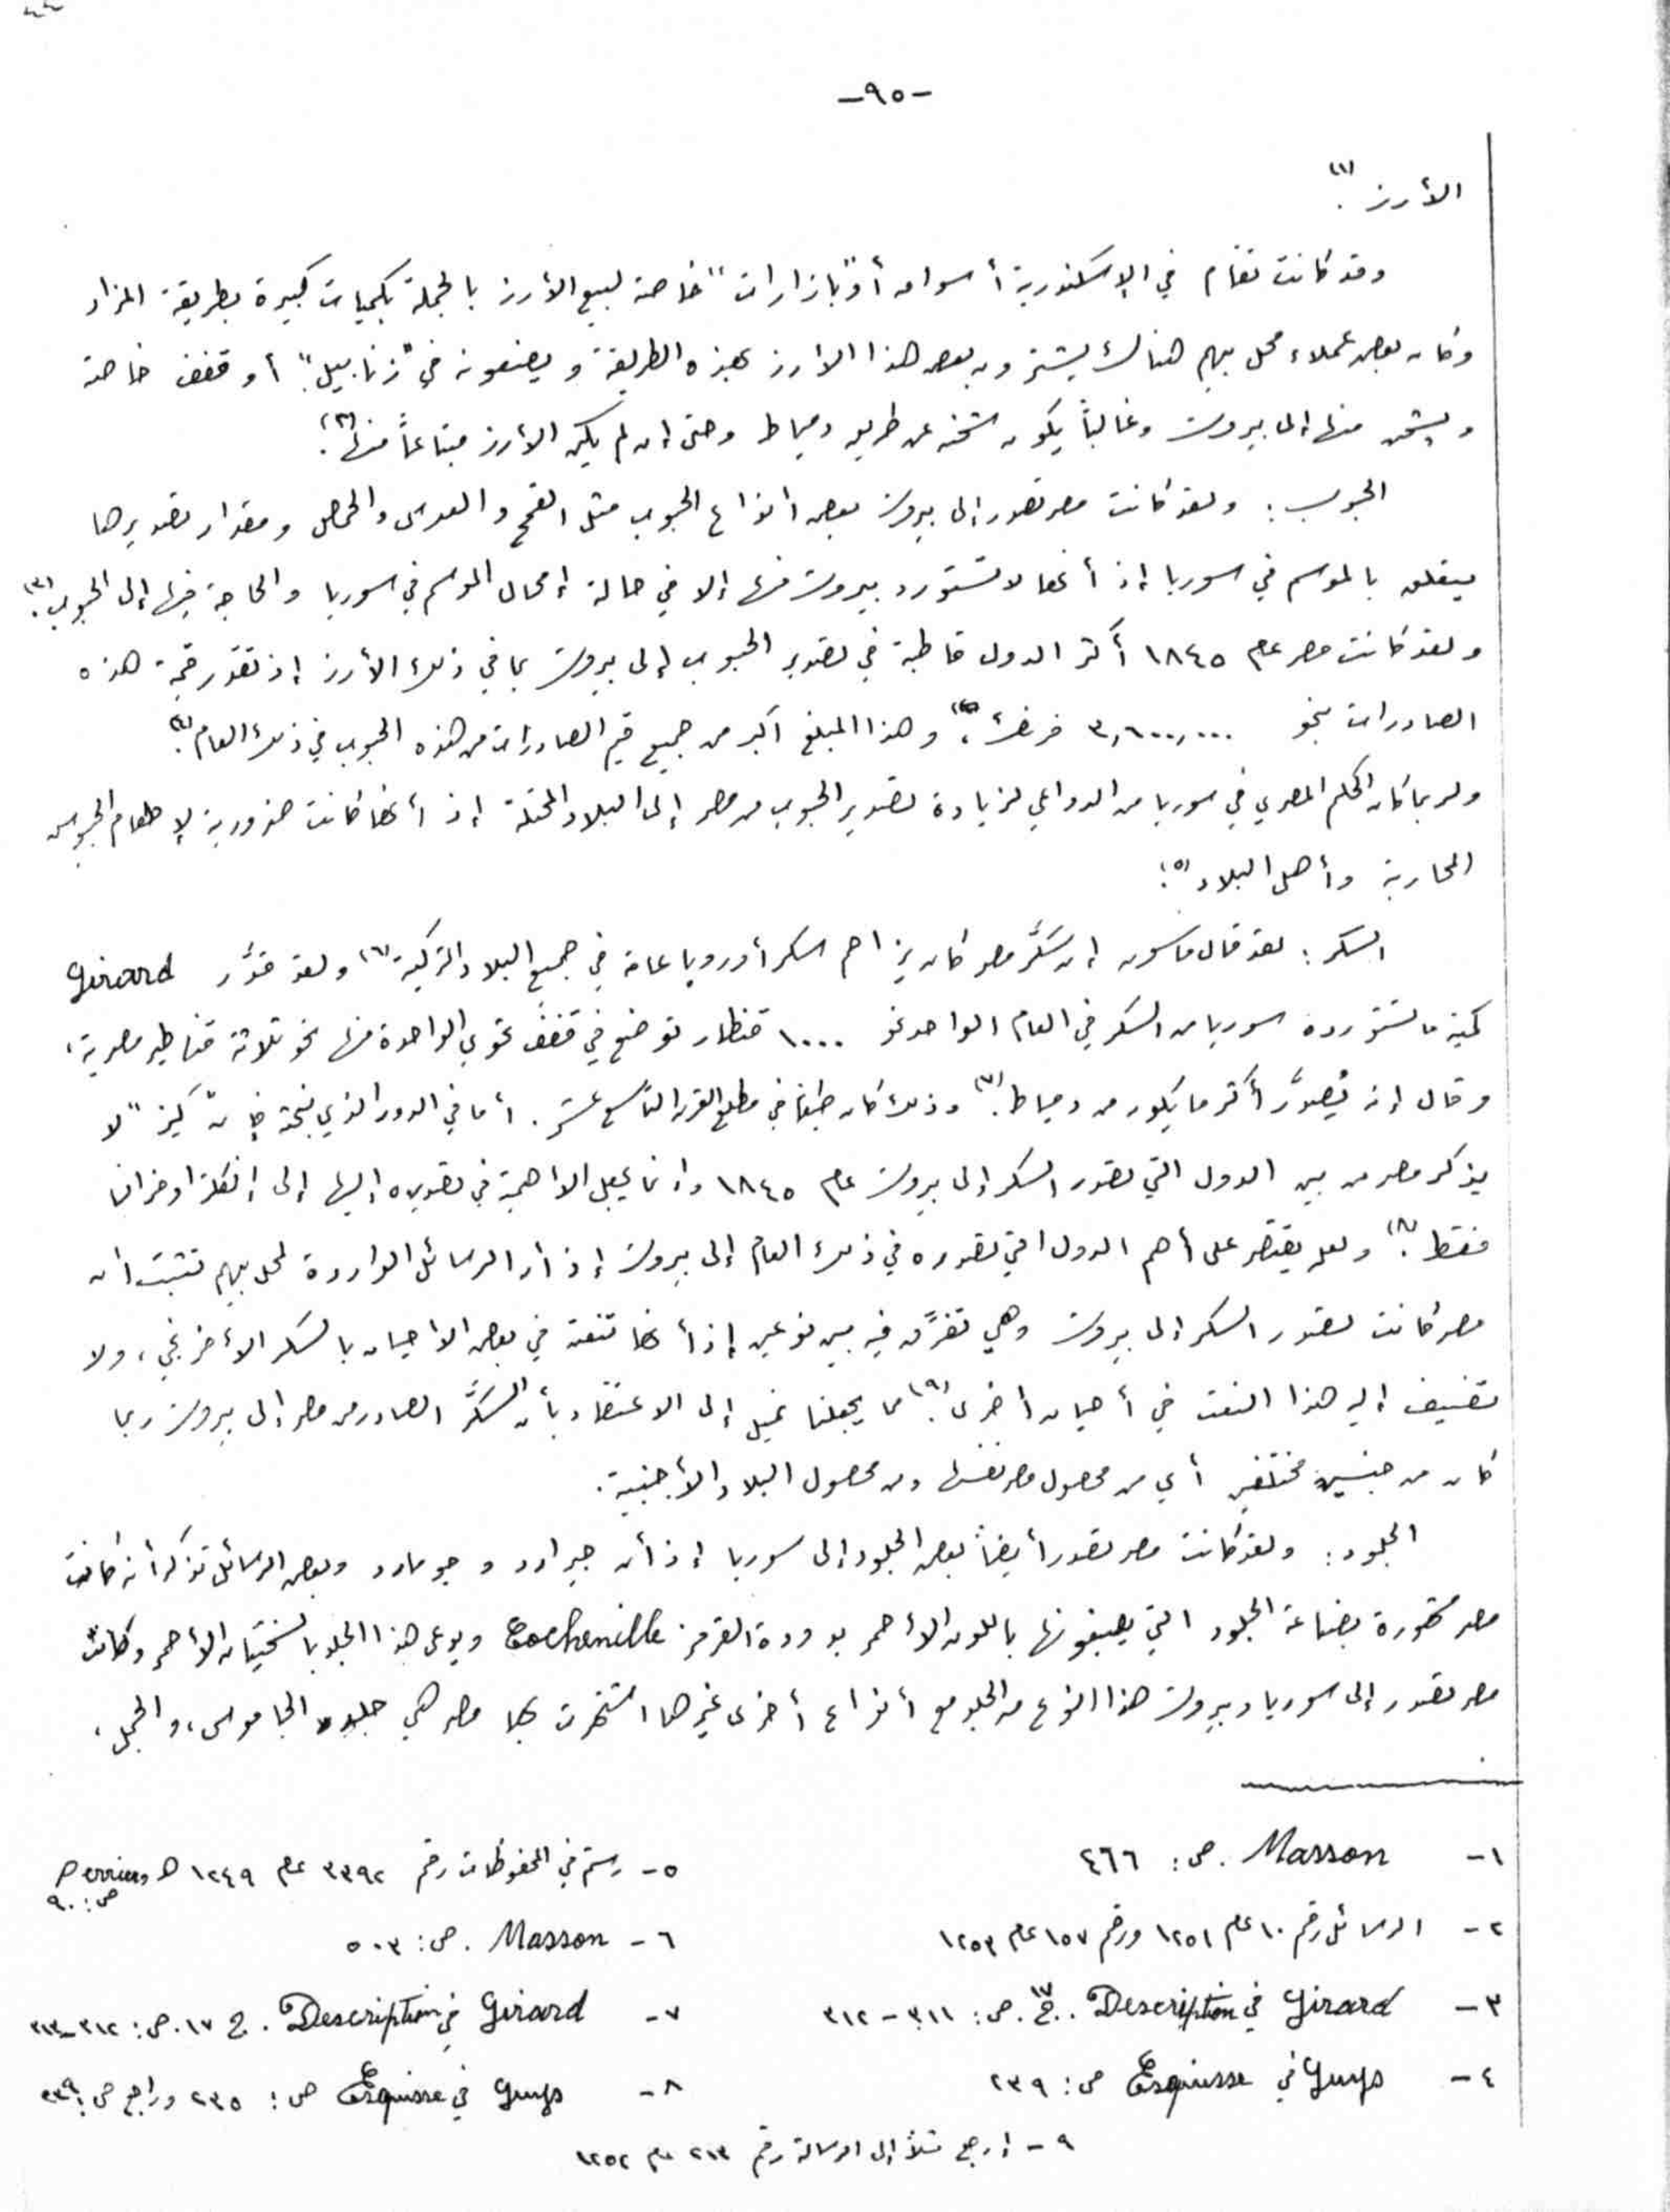 -٩٥-
الأرز (١).
وقد كانت تقام في الإسكندرية أسواق أو "بازارات" خاصة لبيع الأرز بالجملة بكميات كبيرة بطريقة المزاد
وكان بعض عملاء محل بيهم هنالك يشترون بعض هذا الأرز بهذه الطريقة ويضعونه في "زنابيل" أو قفف خاصة
ويشحن منها إلى بيروت وغالباً يكون شحنه عن طريق دمياط وحتى إن لم يكن الأرز مبتاعاً منها (٢).
الحبوب : ولقد كانت مصر تصدر إلى بيروت بعض أنواع الحبوب مثل القمح والعدس والحمص ومقدار تصديرها
يتعلق بالموسم في سوريا إذ أنها لا تستورد بيروت منها إلا في حالة إمحال الموسم في سوريا والحاجة فيها إلى الحبوب (٣).
ولقد كانت مصر عام ١٨٤٥ أكثر الدول قاطبة في تصدير الحبوب إلى بيروت بما في ذلك الأرز إذ تقدر قيمة هذه
الصادرات بنحو ٣,٦٠٠,٠٠٠ فرنك ، وهذا المبلغ أكبر من جميع قيم الصادرات من هذه الحبوب في ذلك العام (٤).
ولربما كان الحكم المصري في سوريا من الدواعي لزيادة تصدير الحبوب من مصر إلى البلاد المحتلة إذ أنها كانت ضرورية لإطعام الجيوش
المحاربة وأهل البلاد (٥).
السكر : لقد قال ماسون إن سكَّر مصر كان يزاحم سكر أوروبا عامة في جميع البلاد التركية (٦) ولقد قدَّر Girard
كمية ما تستورده سوريا من السكر في العام الواحد نحو ١٠٠٠ قنطار توضع في قفف تحوي الواحدة منها نحو ثلاثة قناطير مصرية ،
وقال إنه يُصدَّر أكثر ما يكون من دمياط (٧). وذلك كان طبعاً في مطلع القرن التاسع عشر . أما في الدور الذي نبحثه فإن "كيز" لا
يذكر مصر من بين الدول التي تصدر السكر إلى بيروت عام ١٨٤٥ وإنما يجعل الأهمية في تصديره إليها إلى إنكلترا وفرانسا
فقط (٨). ولعله يقتصر على أهم الدول التي تصدره في ذلك العام إلى بيروت إذ أن الرسائل الواردة لمحل بيهم تثبت أن
مصر كانت تصدر السكر إلى بيروت وهي تفرِّق فيه بين نوعين إذ أنها تنعته في بعض الأحيان بالسكر الأفرنجي ، ولا
تضيف إليه هذا النعت في أحيان أخرى (٩). مما يجعلنا نميل إلى الاعتقاد بأن السكَّر الصادر من مصر إلى بيروت ربما
كان من جنسين مختلفين أي من محصول مصر نفسها ومن محصول البلاد الأجنبية .
الجلود : ولقد كانت مصر تصدر أيضاً بعض الجلود إلى سوريا إذ أن جيرارد وجومارد وبعض الرسائل تذكر أنه كانت
مصر مشهورة بصناعة الجلود التي يصبغونها باللون الأحمر بدودة القرمز Cochenille ويدعى هذا الجلد بالسختيان الأحمر وكانت
مصر تصدر إلى سوريا وبيروت هذا النوع من الجلد مع أنواع أخرى غيرها اشتهرت بها مصر هي جلد الجاموس ، والجمل ،
١- Masson . ص : ٤٦٦
٢- الرسائل رقم ١٠ عام ١٢٥١ ورقم ١٥٧ عام ١٢٥٣
٣- Girard في Description . ج ١٧ . ص : ٣١١ - ٣١٢
٤- Guys في Esquisse ص : ٢٣٩
٥- رستم في المحفوظات رقم ٣٣٩٢ عام ١٢٤٩ هـ و Perrier ص : ٩٠
٦- Masson . ص : ٥٠٣
٧- Girard في Description . ج ١٧ . ص : ٣١٢-٣١٣
٨- Guys في Esquisse ص : ٢٣٥ وراجع ص : ٢٣٩
٩- إرجع مثلاً إلى الرسالة رقم ٢١٣ عام ١٢٥٢